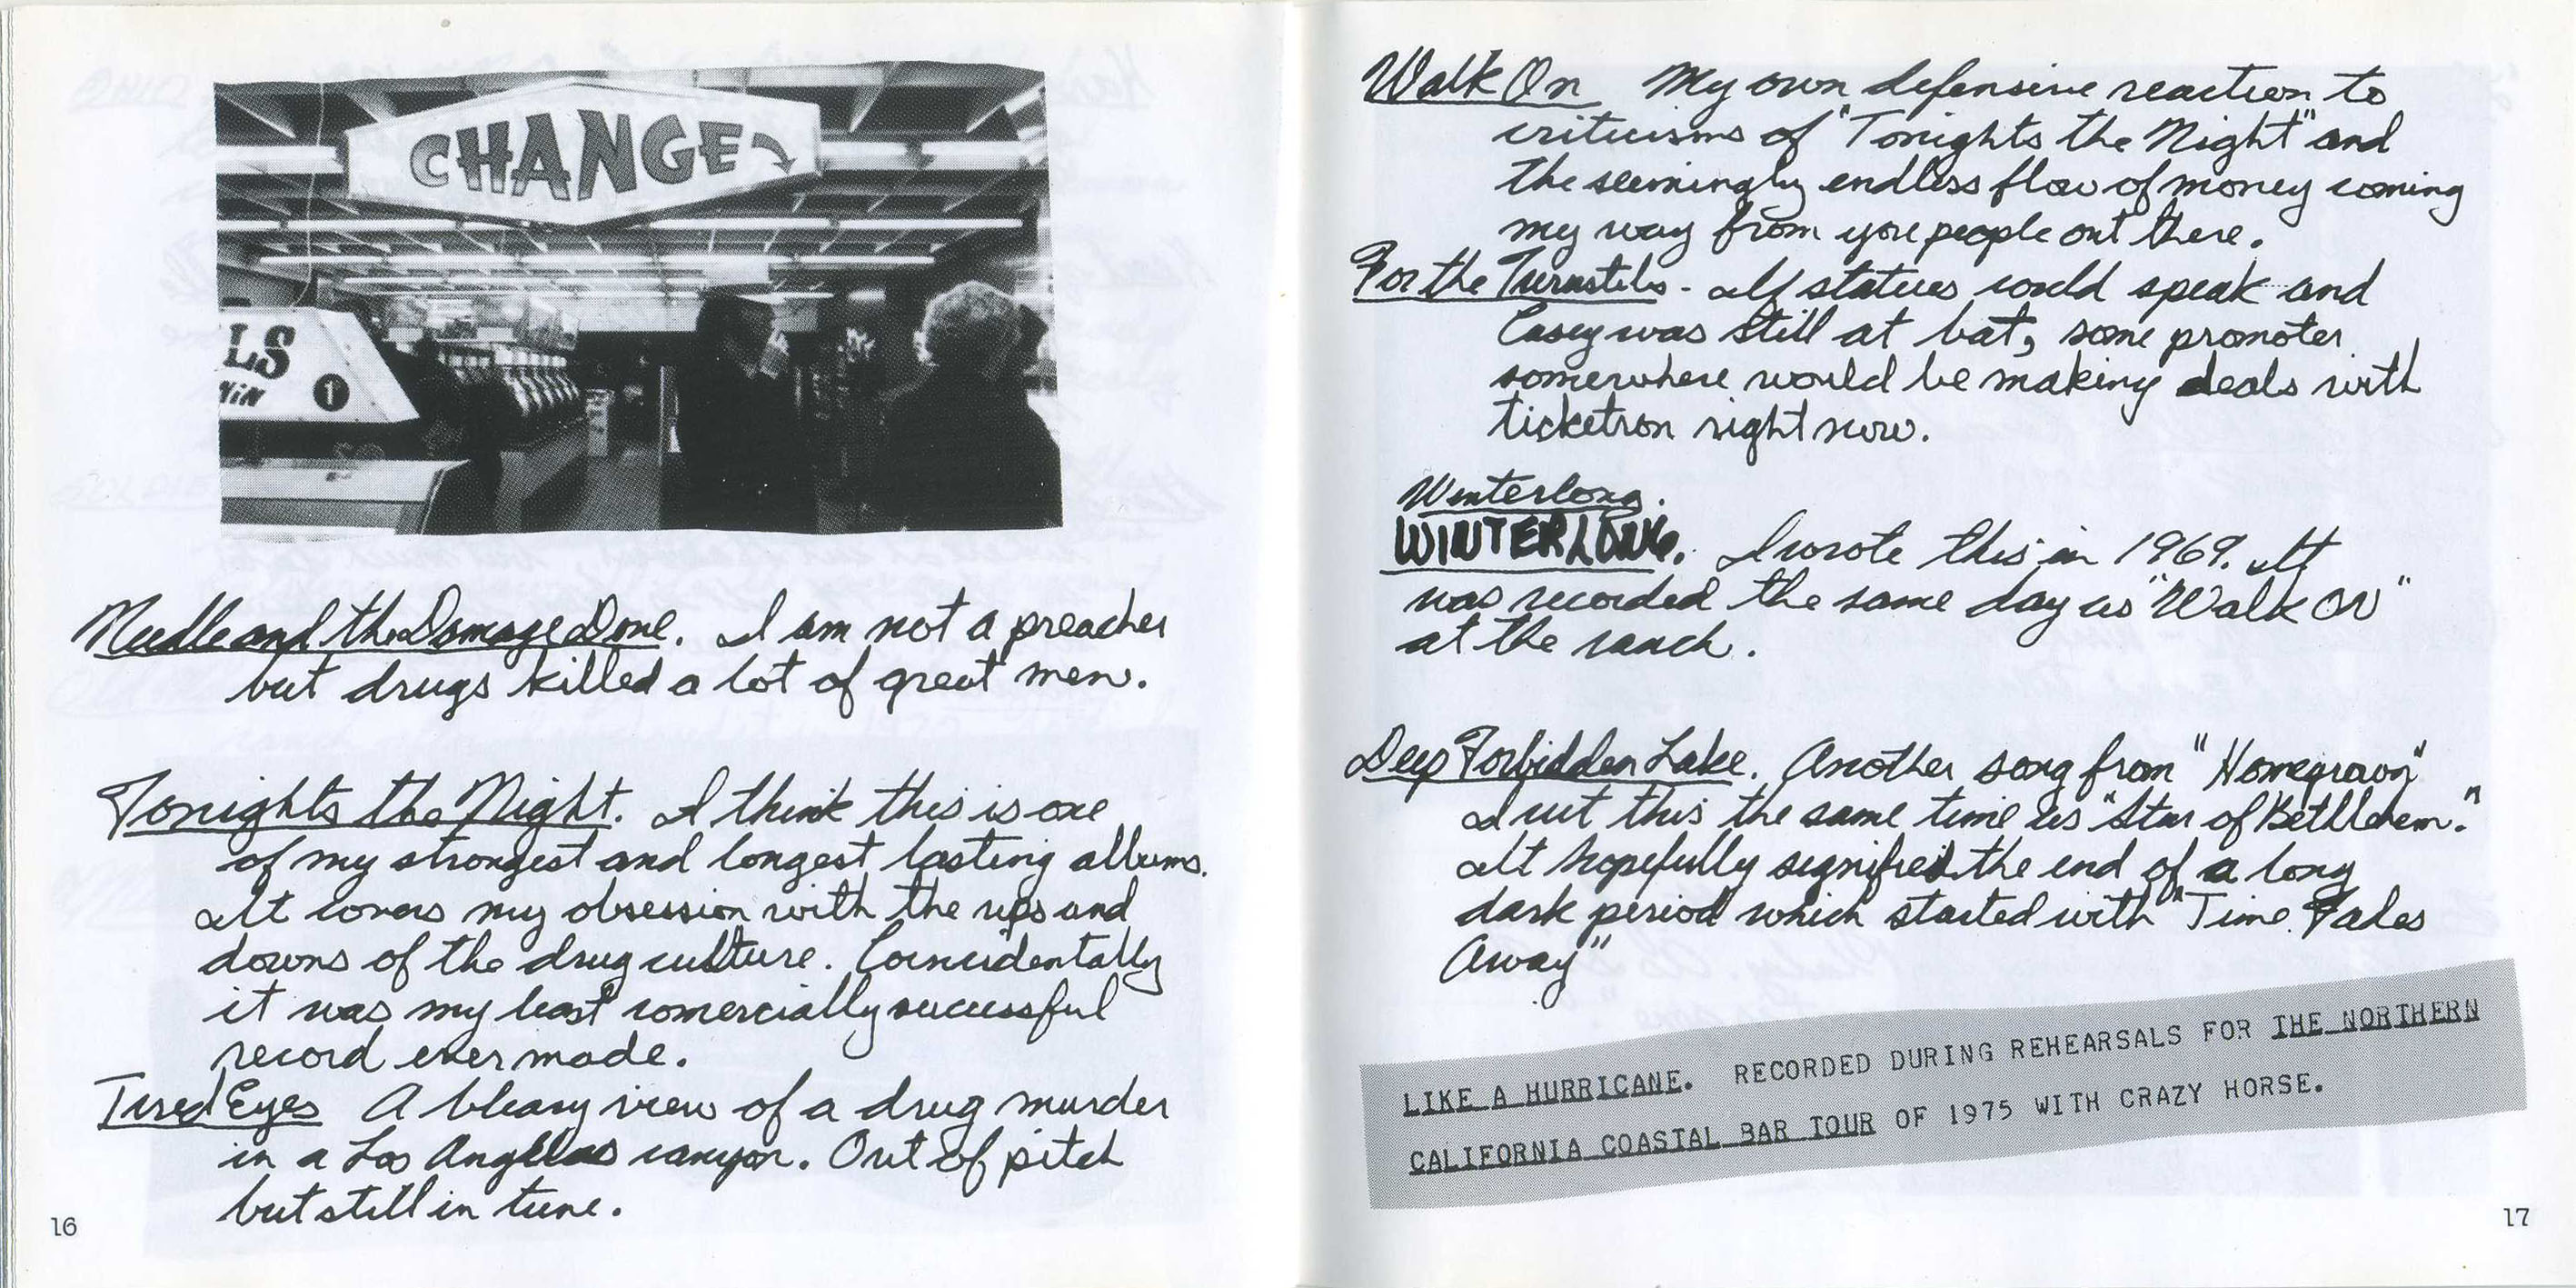 CHANGE
LS
NIN 1
Needle and the Damage Done. I am not a preacher
but drugs killed a lot of great men.
Tonights the Night. I think this is one
of my strongest and longest lasting albums.
It covers my obsession with the ups and
downs of the drug culture. Coincidentally
it was my least comercially successful
record ever made.
Tired Eyes A bleary view of a drug murder
in a Los Angeles canyon. Out of pitch
but still in tune.
16
Walk On My own defensive reaction to
criticisms of "Tonights the Night" and
the seemingly endless flow of money coming
my way from you people out there.
For the Turnstiles - If statues could speak and
Casey was still at bat, some promoter
somewhere would be making deals with
ticketron right now.
Winterlong.
WINTERLONG. I wrote this in 1969. It
was recorded the same day as "Walk On"
at the ranch.
Deep Forbidden Lake. Another song from "Homegrown"
I cut this the same time as "Star of Bethlehem."
It hopefully signified the end of a long
dark period which started with "Time Fades
Away"
LIKE A HURRICANE. RECORDED DURING REHEARSALS FOR THE NORTHERN
CALIFORNIA COASTAL BAR TOUR OF 1975 WITH CRAZY HORSE.
17